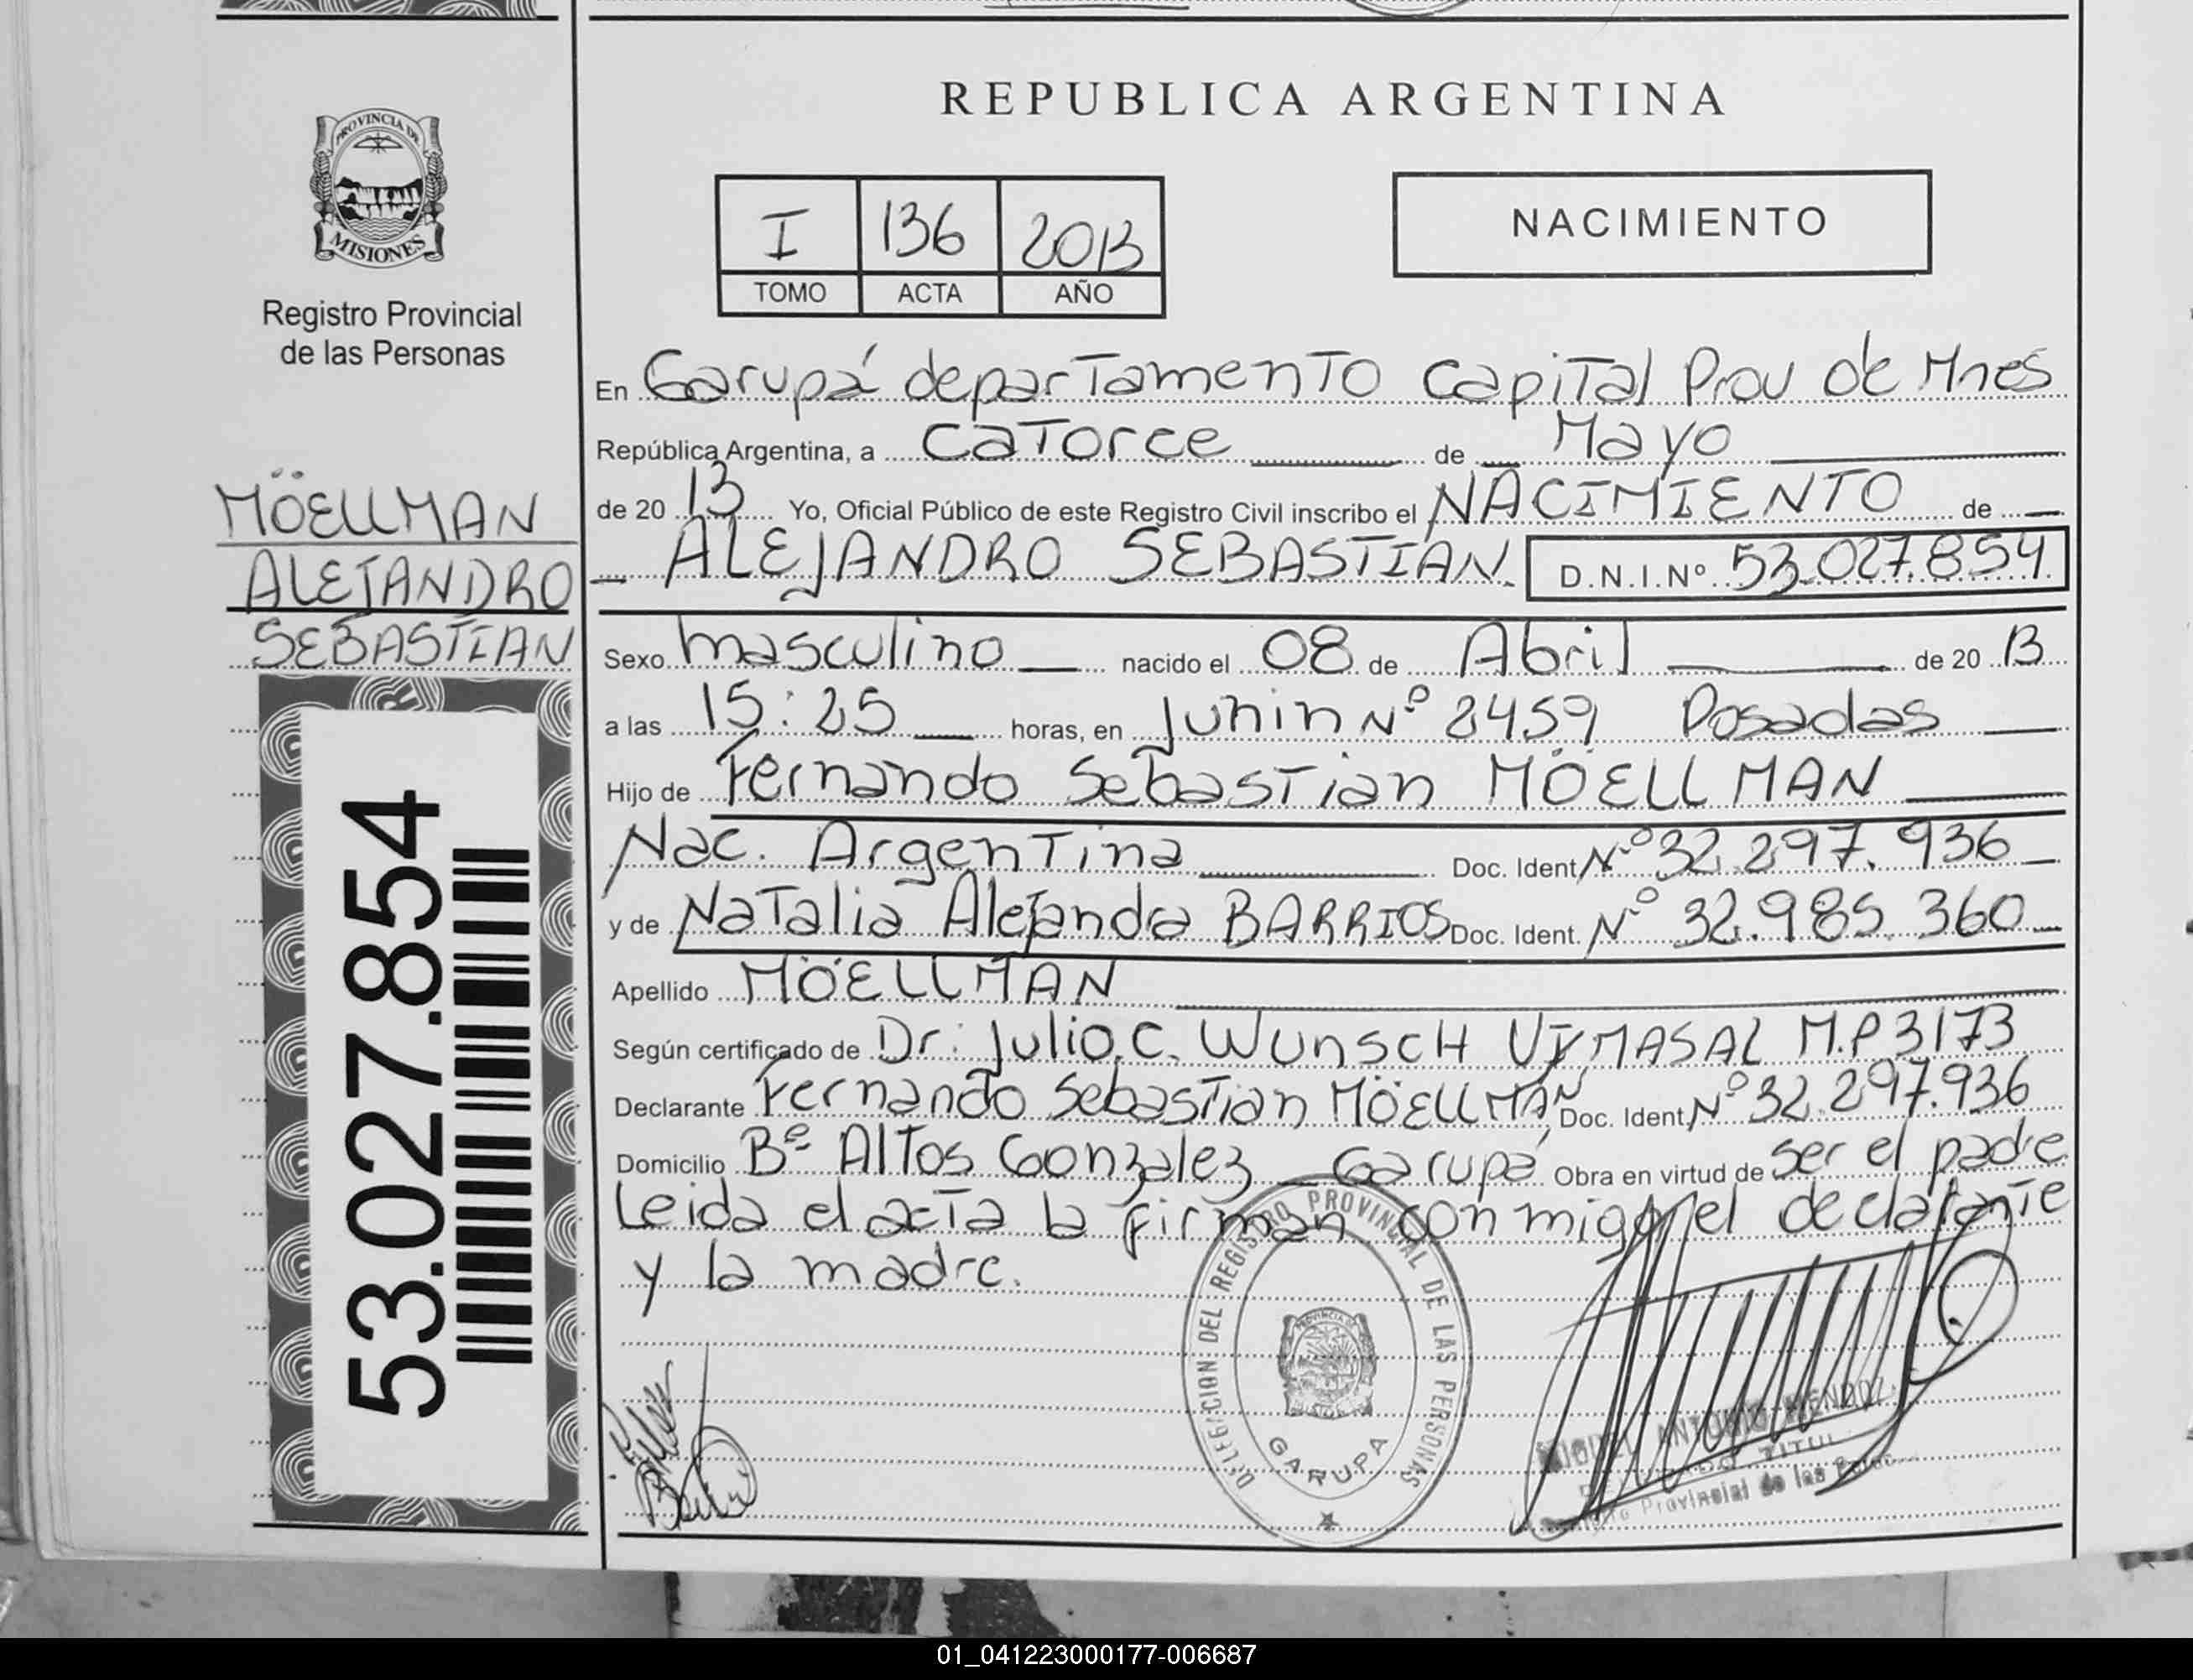 REPUBLICA ARGENTINA
PROVINCIA DE
MISIONES
Registro Provincial
de las Personas
I 136 2013
TOMO ACTA AÑO
NACIMIENTO
En Garupá departamento Capital Prov de Mnes
República Argentina, a Catorce de Mayo
de 20 13 Yo, Oficial Público de este Registro Civil inscribo el NACIMIENTO de
ALEJANDRO SEBASTIAN D.N.I.Nº 53.027.854
MÖELLMAN
ALEJANDRO
SEBASTIAN
53.027.854
Sexo masculino nacido el 08 de Abril de 20 13
a las 15:25 horas, en Junin Nº 2459 Posadas
Hijo de Fernando Sebastian MÖELLMAN
Nac. Argentina Doc. Ident Nº 32.297.936
y de Natalia Alejandra BARRIOS Doc. Ident. Nº 32.985.360
Apellido MÖELLMAN
Según certificado de Dr: Julio.C. WUnSCH M.P 3173
Declarante Fernando Sebastian MÖELLMAN Doc. Ident Nº 32.297.936
Domicilio Bº Altos Gonzalez _ Garupá Obra en virtud de ser el padre
Leida el acta la firman conmigo el declarante
y la madre.
DELEGACION DEL REGISTRO PROVINCIAL DE LAS PERSONAS
GARUPA
ANTONIO
Provincial de las
01_041223000177-006687